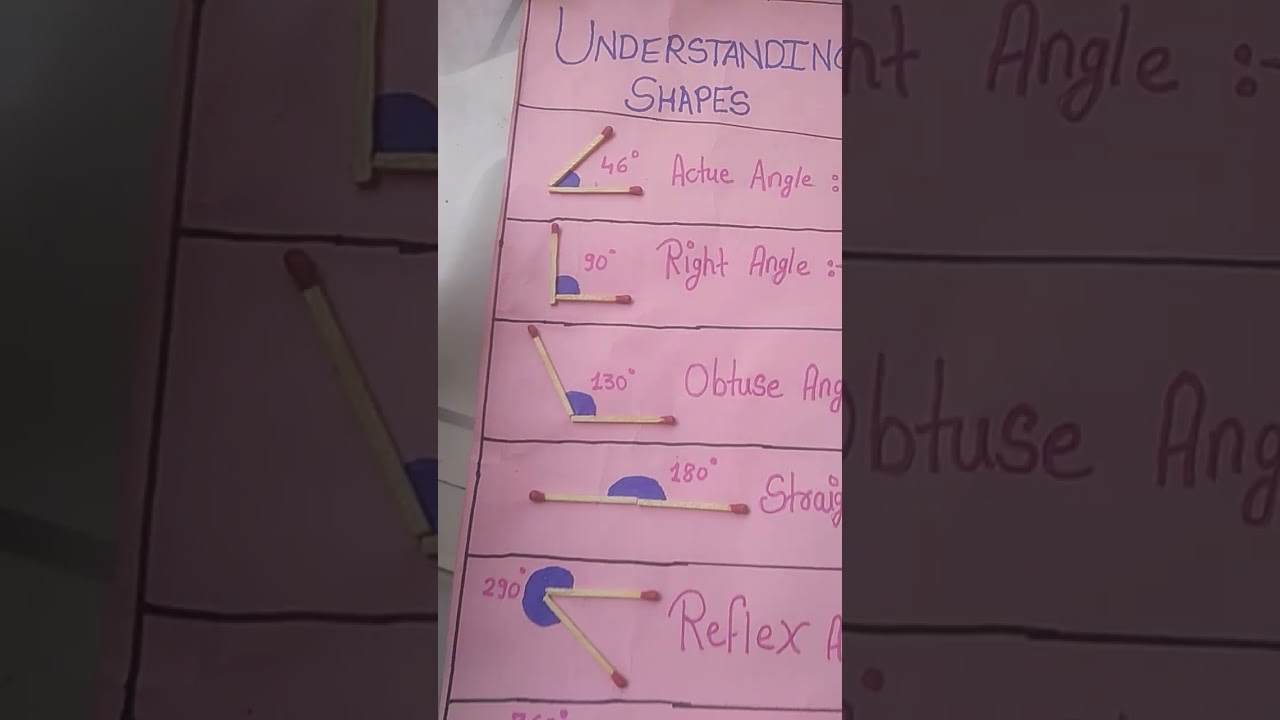 UNDERSTANDING
SHAPES
46° Actue Angle :
90° Right Angle :-
130° Obtuse Ang
180° Straig
290° Reflex A